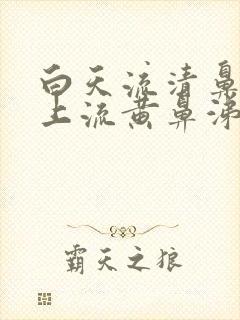 白天流清鼻
上流黄鼻涕
霸天之狼